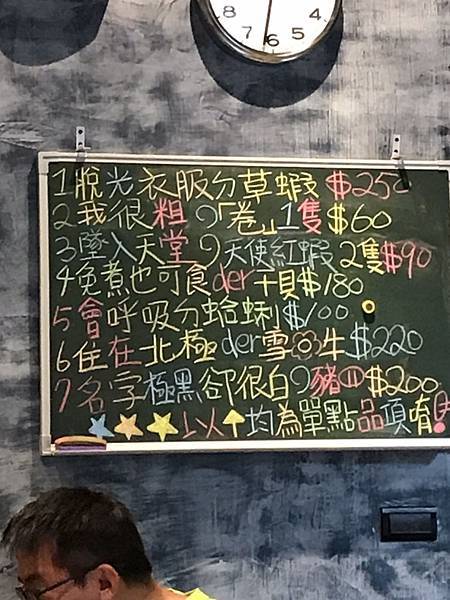 8 7 6 5 4
1脫光衣服ㄉ草蝦 $250
2我很粗ㄉ「卷」1隻$60
3墜入天堂ㄉ天使紅蝦2隻$90
4免煮也可食der干貝$180
5會呼吸ㄉ蛤蜊$100
6住在北極der雪花牛$220
7名字極黑卻很白ㄉ豬$200
以↑均為單點品項唷!